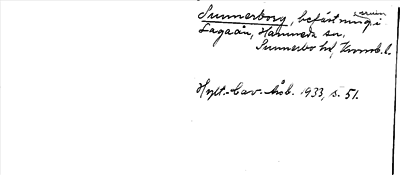 Sunnerborg, befästningsruin i
Lagaån, Hamneda sn.
Sunnerbo hd, Kronob. l.
Hylt.-Cav. årsb. 1933, s. 51.